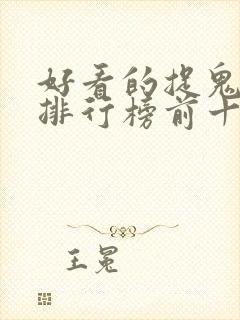 好看的捉鬼
排行榜前十
王冕